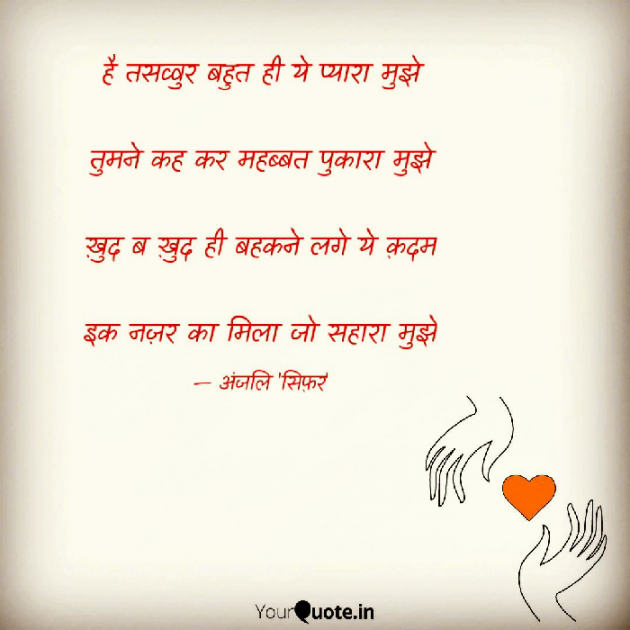 है तसव्वुर बहुत ही ये प्यारा मुझे
तुमने कह कर महब्बत पुकारा मुझे
ख़ुद ब ख़ुद ही बहकने लगे ये क़दम
इक नज़र का मिला जो सहारा मुझे
— अंजलि 'सिफ़र'
YourQuote.in